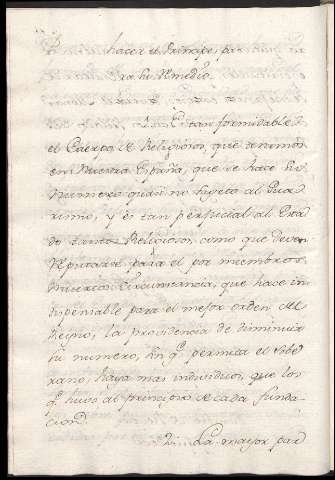 hacer el Principe, pa=
ra su Remedio.
1. es tan formidable
el Cuerpo de Religiosos, que tenemos
en Nuestra España, que se hace su
numero quasi no sugeto al Gua=
rismo, y es tan perjudicial al Esta=
do tanto Religioso, como que deven
Reputarse para el por miembros
muertos. Circunstancia, que hace in=
dispensable para el mejor orden del
Reyno, la providencia de diminuir
su numero, sin q.e permita el Sobe=
rano, haya mas individuos, que los
q.e huvo al principio de cada funda=
cion.
2. La mayor par